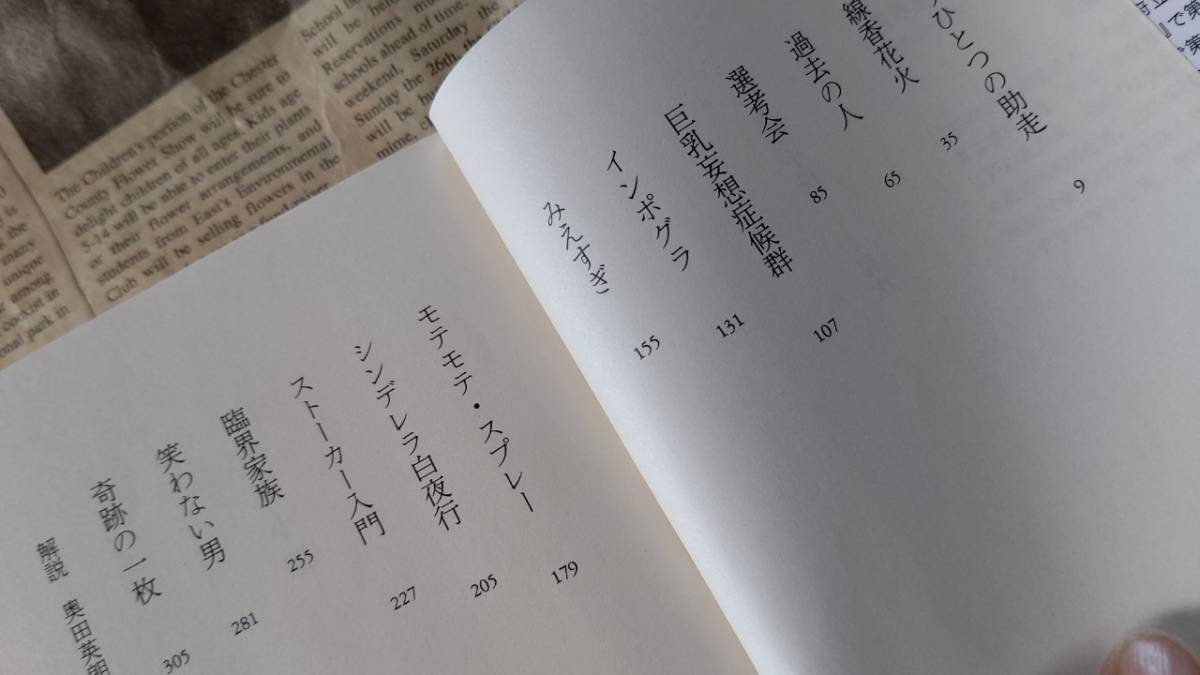 ひとつの助走
9
線香花火
35
過去の人
65
選考会
85
巨乳妄想症候群
107
インポグラ
131
みえすぎ
155
モテモテ・スプレー
179
シンデレラ白夜行
205
ストーカー入門
227
臨界家族
255
笑わない男
281
奇跡の一枚
305
解説 奥田英朗
The Children's portion of the Chester
County Flower Show will be sure to
delight children of all ages. Kids age
5-14 will be able to enter their plants
or their flower arrangements, and
students from East's Environmental
Club will be selling flowers in the
School
will be here
Reservations must
schools ahead of time.
weekend, Saturday the
Sunday the 26th
will be
mime,
many
unique
among
park in
で第
第